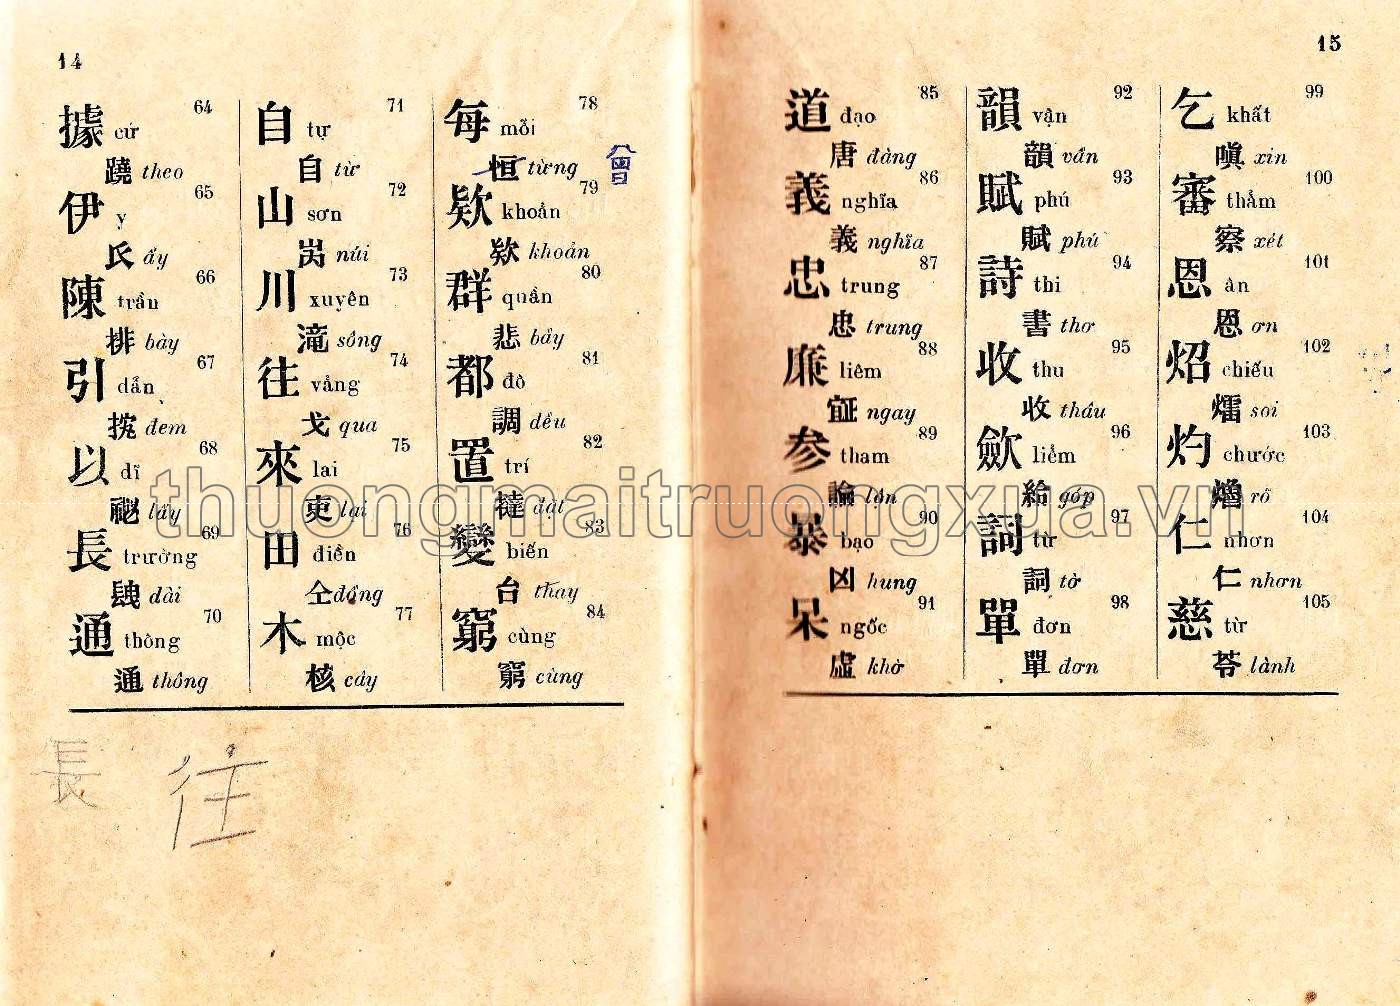 14
64
據 cứ
蹺 theo
65
伊 y
氏 ấy
66
陳 trần
排 bày
67
引 dẫn
㧅 đem
68
以 dĩ
祕 lấy
69
長 trường
dài
70
通 thông
通 thông
71
自 tự
自 từ
72
山 sơn
núi
73
川 xuyên
滝 sông
74
往 vảng
戈 qua
75
來 lai
吏 lại
76
田 điền
仝 đồng
77
木 mộc
核 cây
78
每 mỗi
恒 từng
曾
79
欵 khoản
欵 khoản
80
群 quần
悲 bầy
81
都 đô
調 đều
82
置 trí
撻 đặt
83
變 biến
台 thay
84
窮 cùng
窮 cùng
長
往
15
85
道 đạo
唐 đàng
86
義 nghĩa
義 nghĩa
87
忠 trung
忠 trung
88
廉 liêm
ngay
89
参 tham
論 lộn
90
暴 bạo
凶 hung
91
呆 ngốc
虛 khờ
92
韻 vận
韻 vần
93
賦 phú
賦 phú
94
詩 thi
書 thơ
95
收 thu
收 thâu
96
歛 liểm
給 góp
97
詞 từ
詞 tờ
98
單 đơn
單 đơn
99
乞 khất
嗔 xin
100
審 thẩm
察 xét
101
恩 ân
恩 ơn
102
炤 chiếu
soi
103
灼 chước
rõ
104
仁 nhơn
仁 nhơn
105
慈 từ
苓 lành
thuongmaitruongxua.vn